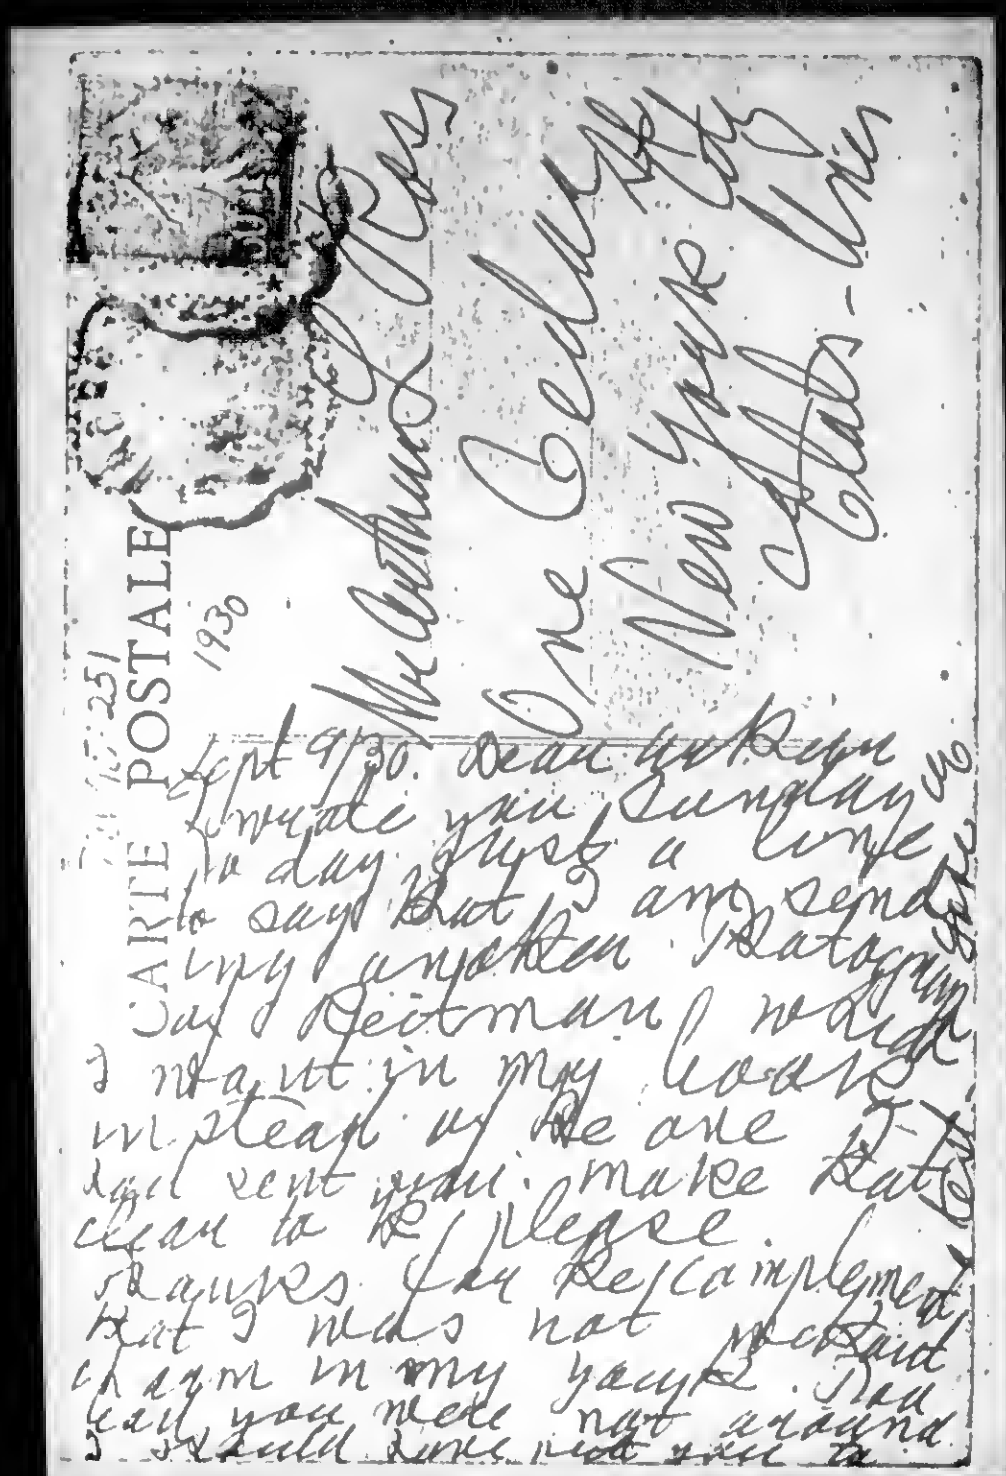 CARTE POSTALE
251
1930
Mr Arthur L Ross
One Cedar St
New York City
Etats-Unis
Sept 9/30. Dear Arthur
I wrote you Sunday
To day just a line
to say that I am send
ing another Photograph
Reitman which
I want in my book
instead of the one I
had sent you. make that
clear to K please.
Thanks for the complement
that I was not without
charm in my youth.
you were not around
I should have you to